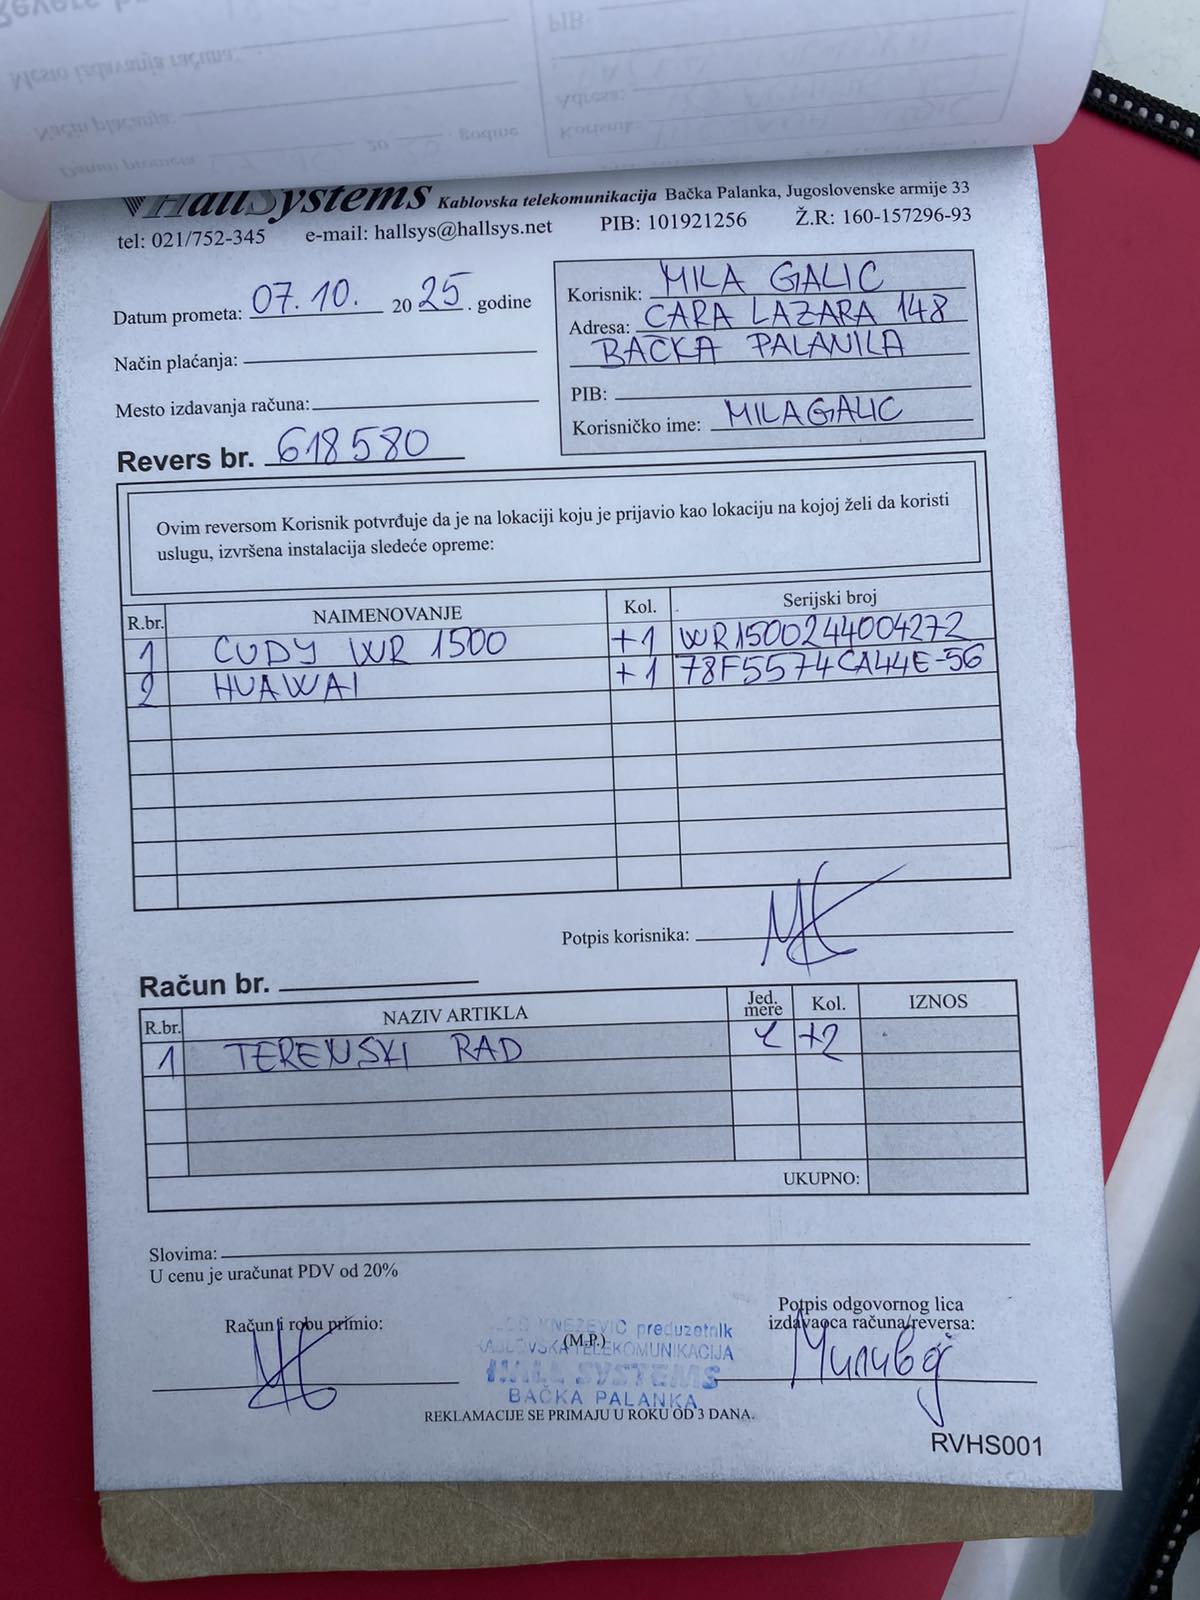 HallSystems Kablovska telekomunikacija Bačka Palanka, Jugoslovenske armije 33
tel: 021/752-345 e-mail: hallsys@hallsys.net PIB: 101921256 Ž.R: 160-157296-93
Datum prometa: 07.10. 20 25. godine
Način plaćanja:
Mesto izdavanja računa:
Revers br. 618580
Korisnik: MILA GALIC
Adresa: CARA LAZARA 148
BAČKA PALANKA
PIB:
Korisničko ime: MILAGALIC
Ovim reversom Korisnik potvrđuje da je na lokaciji koju je prijavio kao lokaciju na kojoj želi da koristi
uslugu, izvršena instalacija sledeće opreme:
R.br. NAIMENOVANJE Kol. Serijski broj
1 CUDY WR 1500 +1 WR1500244004272
2 HUAWAI +1 78F5574CA44E-56
Potpis korisnika:
Račun br.
R.br. NAZIV ARTIKLA Jed. mere Kol. IZNOS
1 TERENSKI RAD Č +2
UKUPNO:
Slovima:
U cenu je uračunat PDV od 20%
Račun i robu primio:
(M.P.)
KNEŽEVIĆ preduzetnik
KABLOVSKA TELEKOMUNIKACIJA
HALL SYSTEMS
BAČKA PALANKA
Potpis odgovornog lica
izdavaoca računa/reversa:
Миливој
REKLAMACIJE SE PRIMAJU U ROKU OD 3 DANA.
RVHS001